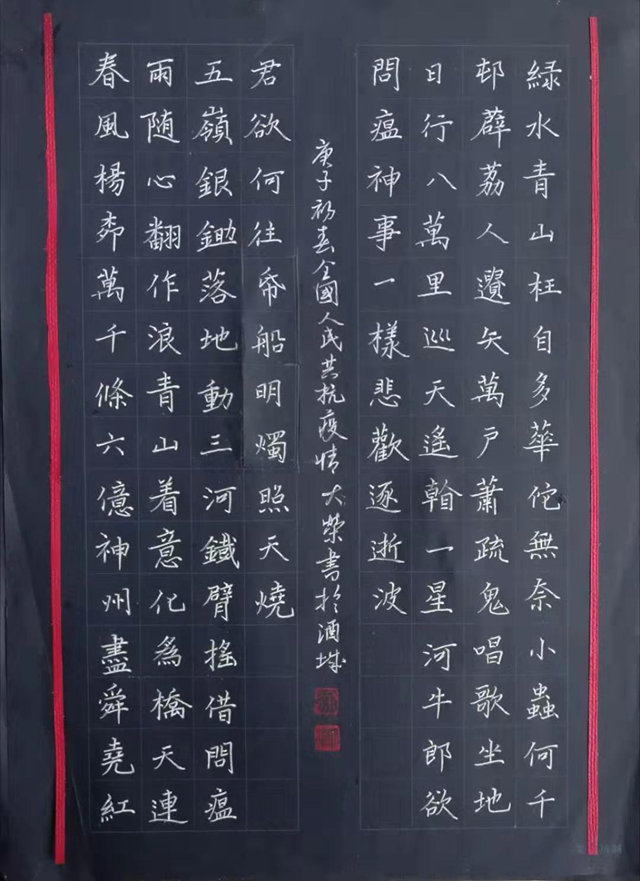 綠水青山枉自多華佗無奈小蟲何千
邨薜荔人遺矢萬戶蕭疏鬼唱歌坐地
日行八萬里巡天遙看一星河牛郎欲
問瘟神事一樣悲歡逐逝波
春風楊桺萬千條六億神州盡舜堯紅
雨随心翻作浪青山着意化為橋天連
五嶺銀鋤落地動三河鐵臂搖借問瘟
君欲何往帋船明燭照天燒
庚子初春全國人民共抗疫情大榮書於酒城